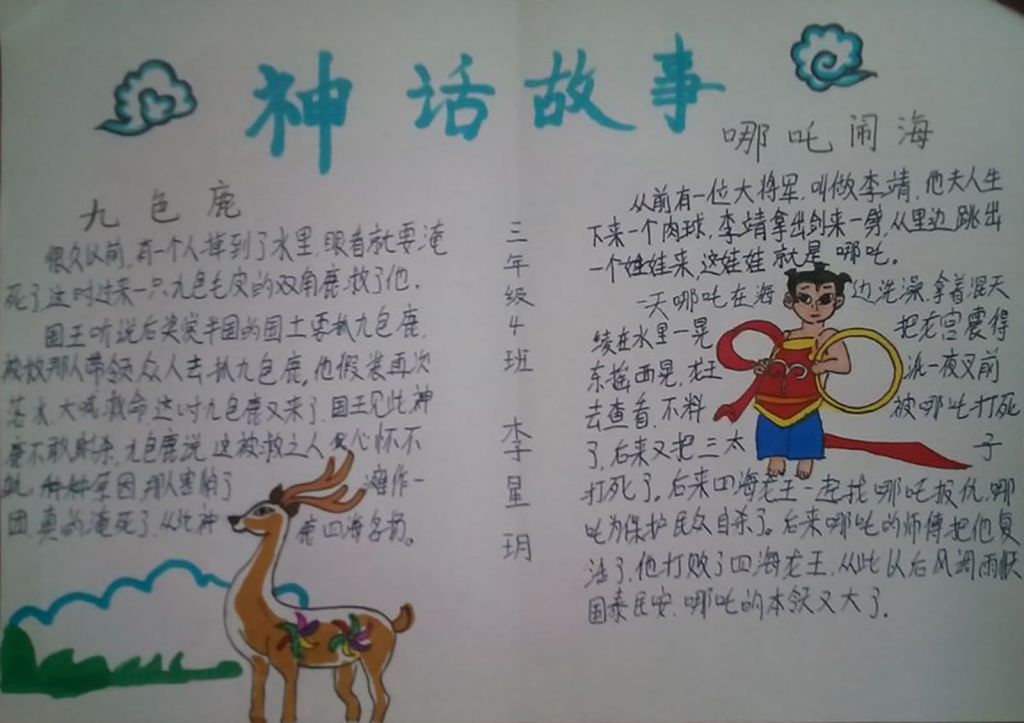 神话故事
九色鹿
很久以前,有一个人掉到了水里,眼看就要淹
死了,这时过来一只九色毛皮的双角鹿,救了他.
国王听说后奖赏半国的国土要抓九色鹿.
被救那人带领众人去抓九色鹿,他假装再次
落水,大喊救命,这时九色鹿又来了,国王见此神
鹿不敢射杀,九色鹿说,这被救之人 心怀不
种种原因,那人害怕了 作一
团,真的淹死了,从此神 鹿四海名扬。
三年级4班 李星玥
哪吒闹海
从前有一位大将军,叫做李靖,他夫人生
下来一个肉球,李靖拿出剑来一劈,从里边跳出
一个娃娃来,这娃娃就是 哪吒.
一天哪吒在海 边洗澡,拿着混天
绫在水里一晃 把龙宫震得
东摇西晃,龙王 派一夜叉前
去查看,不料 被哪吒打死
了,后来又把三太 子
打死了。后来四海龙王一起找哪吒报仇,哪
吒为保护民众自杀了。后来哪吒的师傅把他复
活了,他打败了四海龙王,从此以后风调雨顺
国泰民安,哪吒的本领又大了.